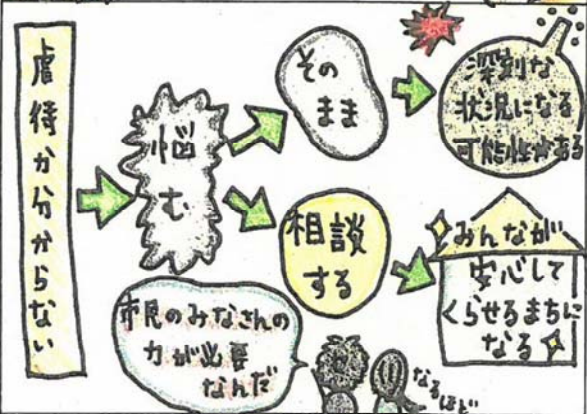 虐待か分からない
悩
む
その
まま
深刻な
状況になる
可能性がある
相談
する
みんなが
安心して
くらせるまちに
なる
市民のみなさんの
力が必要
なんだ
なるほど